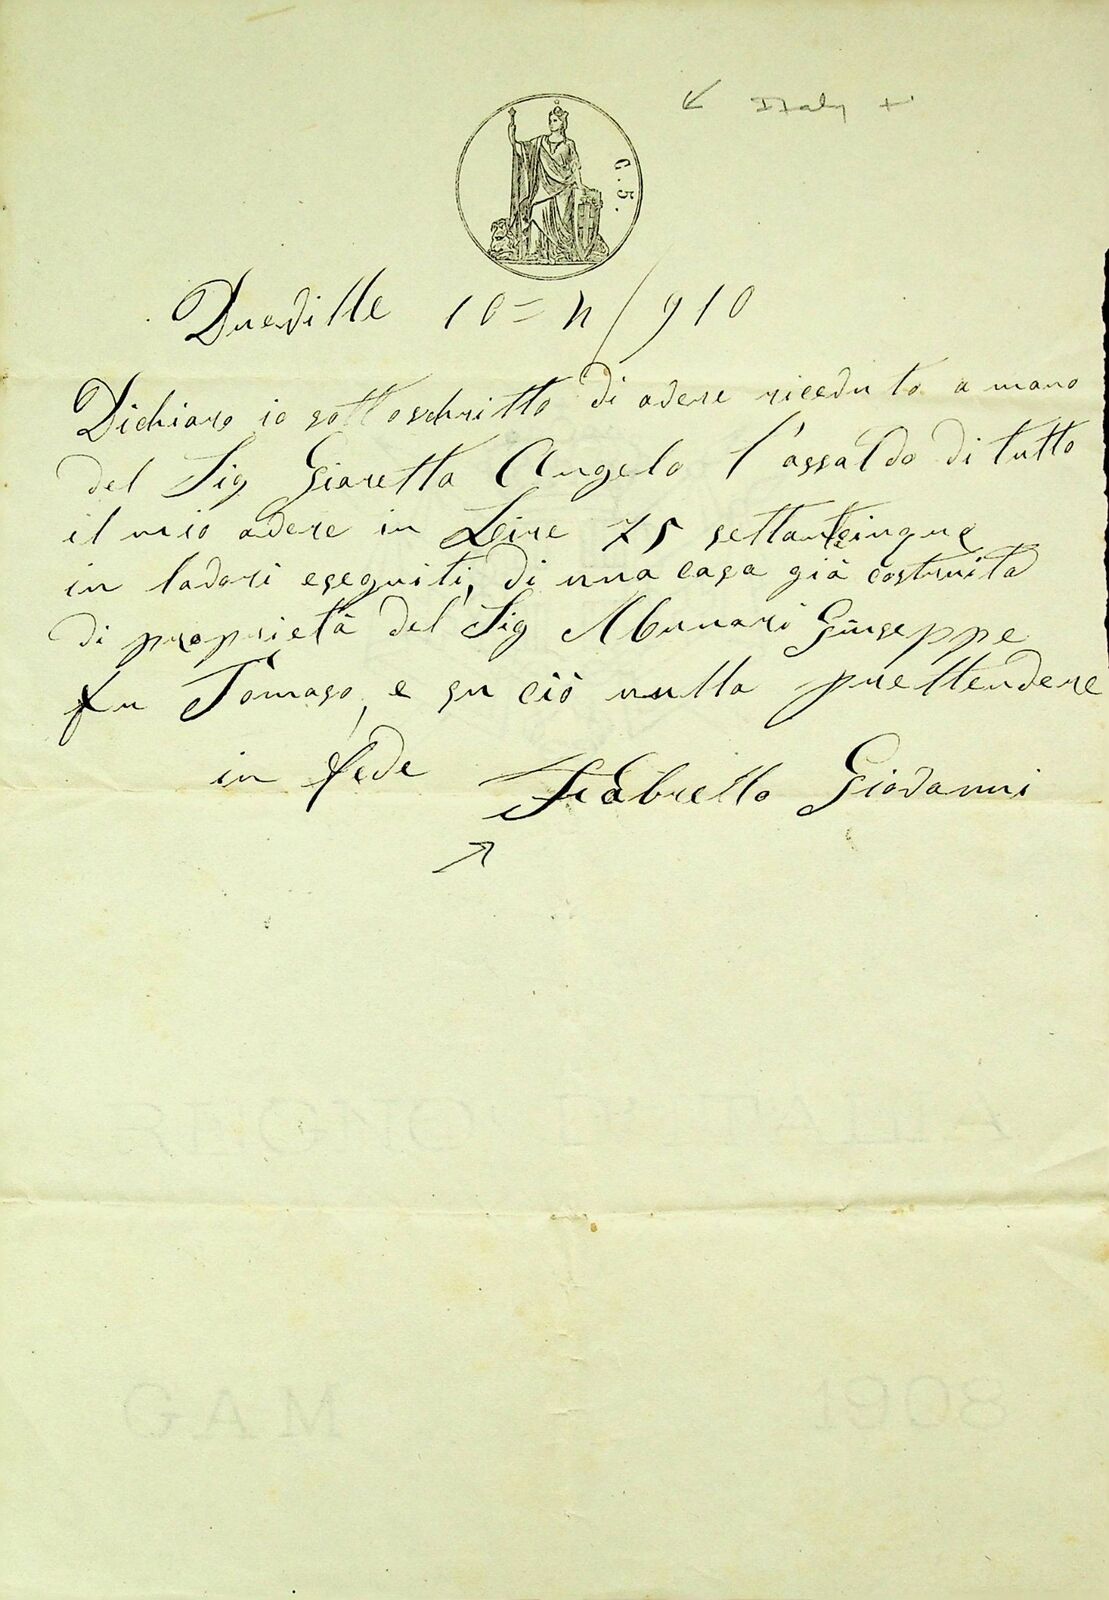 Italy
C. 5.
Dueville 10 = 11 / 910
Dichiaro io sottoschritto di avere ricevuto a mano
del Sig Giaretta Angelo l'assaldo di tutto
il mio avere in Leire 75 settantcinque
in lavori eseguiti, di una casa già costruita
di proprietà del Sig Munari Giuseppe
fu Tomaso, e su ciò nulla prettendere
in fede Fabrello Giovanni
GAM 1908